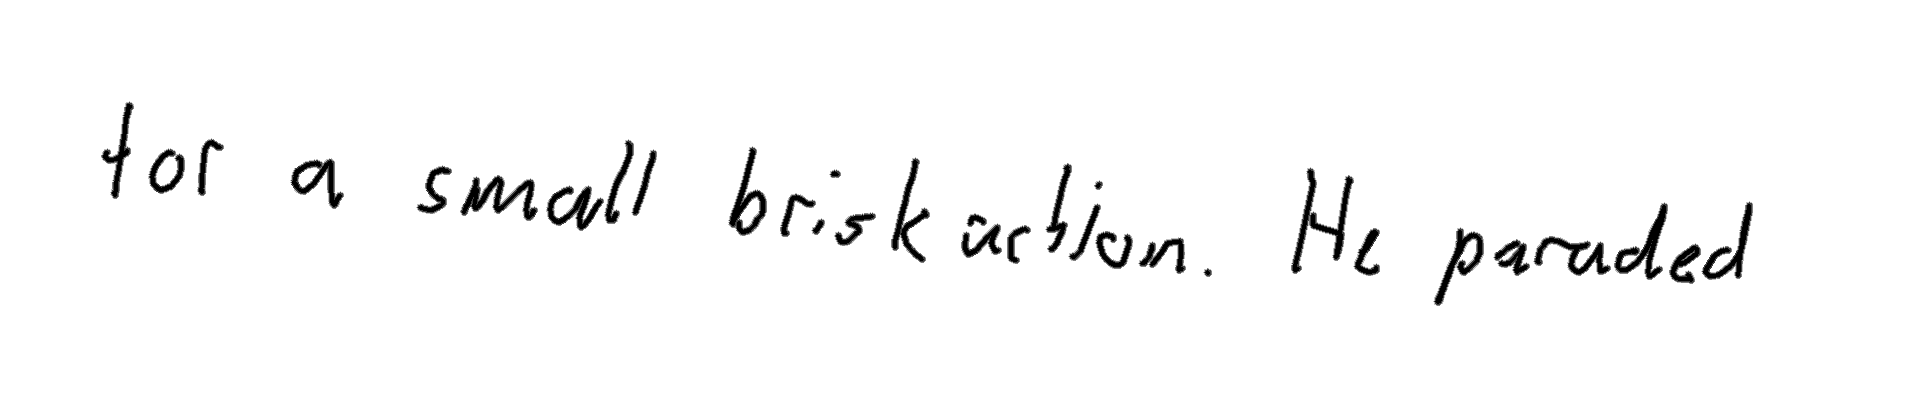 for a small brisk action. He paraded